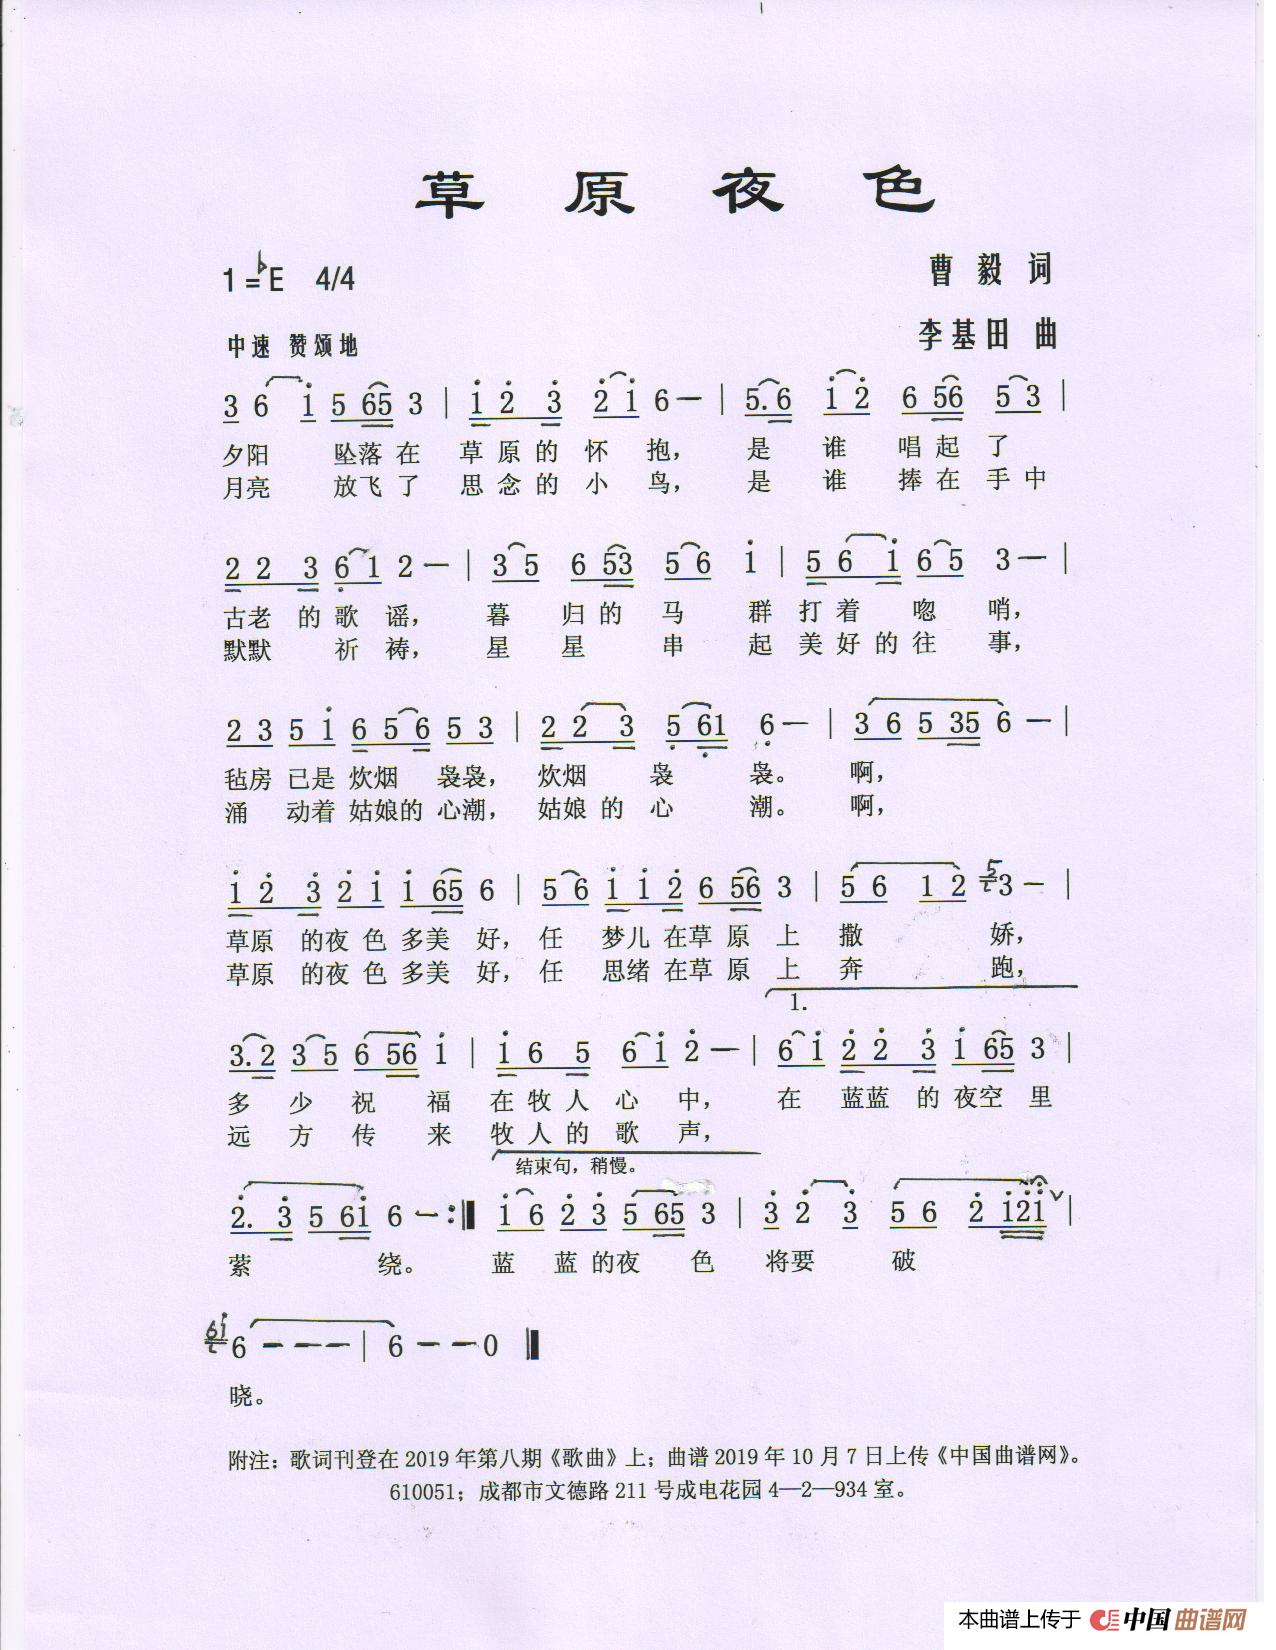 草原夜色
1=♭E 4/4
曹毅 词
中速 赞颂地
李基田 曲
3 6 i 5 65 3 | i 2 3 2 i 6— | 5.6 i 2 6 56 5 3 |
夕阳 坠落在 草原的怀抱， 是 谁 唱起了
月亮 放飞了 思念的小鸟， 是 谁 捧在手中
2 2 3 6 1 2— | 3 5 6 53 5 6 i | 5 6 i 6 5 3— |
古老 的歌谣， 暮 归的马 群打着 唿 哨，
默默 祈祷， 星 星 串 起美好的往 事，
2 3 5 i 6 5 6 5 3 | 2 2 3 5 61 6— | 3 6 5 35 6— |
毡房 已是 炊烟 袅袅， 炊烟 袅 袅。 啊，
涌 动着 姑娘的 心潮， 姑娘的 心 潮。 啊，
i 2 3 2 i i 65 6 | 5 6 i i 2 6 56 3 | 5 6 1 2 5 3— |
草原 的夜色多美 好，任 梦儿在草原 上 撒 娇，
草原 的夜色多美 好，任 思绪在草原 上 奔 跑，
1.
3.2 3 5 6 56 i | i 6 5 6 i 2— | 6 i 2 2 3 i 65 3 |
多 少 祝 福 在牧人心 中， 在 蓝蓝 的夜空里
远 方 传 来 牧人的歌 声，
结束句，稍慢。
2. 3 5 6i 6—:‖ i 6 2 3 5 65 3 | 3 2 3 5 6 2 i2i ∨ |
萦 绕。 蓝 蓝的夜 色 将要 破
6i 6——— | 6——0 ‖
晓。
附注：歌词刊登在2019年第八期《歌曲》上；曲谱2019年10月7日上传《中国曲谱网》。
610051；成都市文德路211号成电花园4—2—934室。
本曲谱上传于 中国曲谱网